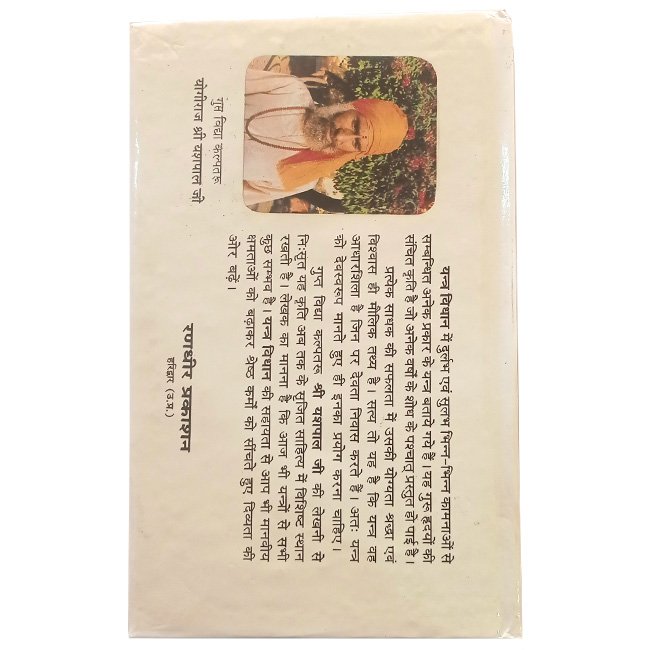 गुप्त विद्या कल्पतरू
योगीराज श्री यशपाल जी
यन्त्र विधान में दुर्लभ एवं सुलभ भिन्न-भिन्न कामनाओं से
सम्बन्धित अनेक प्रकार के यन्त्र बताये गये है। यह गुरू हृदयों की
संचित कृति है जो अनेक वर्षों के शोध के पश्चात् प्रस्तुत हो पाई है।
प्रत्येक साधक की सफलता में उसकी योग्यता श्रद्धा एवं
विश्वास ही मौलिक तथ्य है। सत्य तो यह है कि यन्त्र वह
आधारशिला है जिन पर देवता निवास करते हैं। अतः यन्त्र
को देवस्वरूप मानते हुए ही इनका प्रयोग करना चाहिए।
गुप्त विद्या कल्पतरू श्री यशपाल जी की लेखनी से
निःसृत यह कृति अब तक के सृजित साहित्य में विशिष्ट स्थान
रखती है। लेखक का मानना है कि आज भी यन्त्रों से सभी
कुछ सम्भव है। यन्त्र विधान की सहायता से आप भी मानवीय
क्षमताओं को बढ़ाकर श्रेष्ठ कर्मो को सींचते हुए दिव्यता की
ओर बढ़ें।
रणधीर प्रकाशन
हरिद्वार (उ.प्र.)